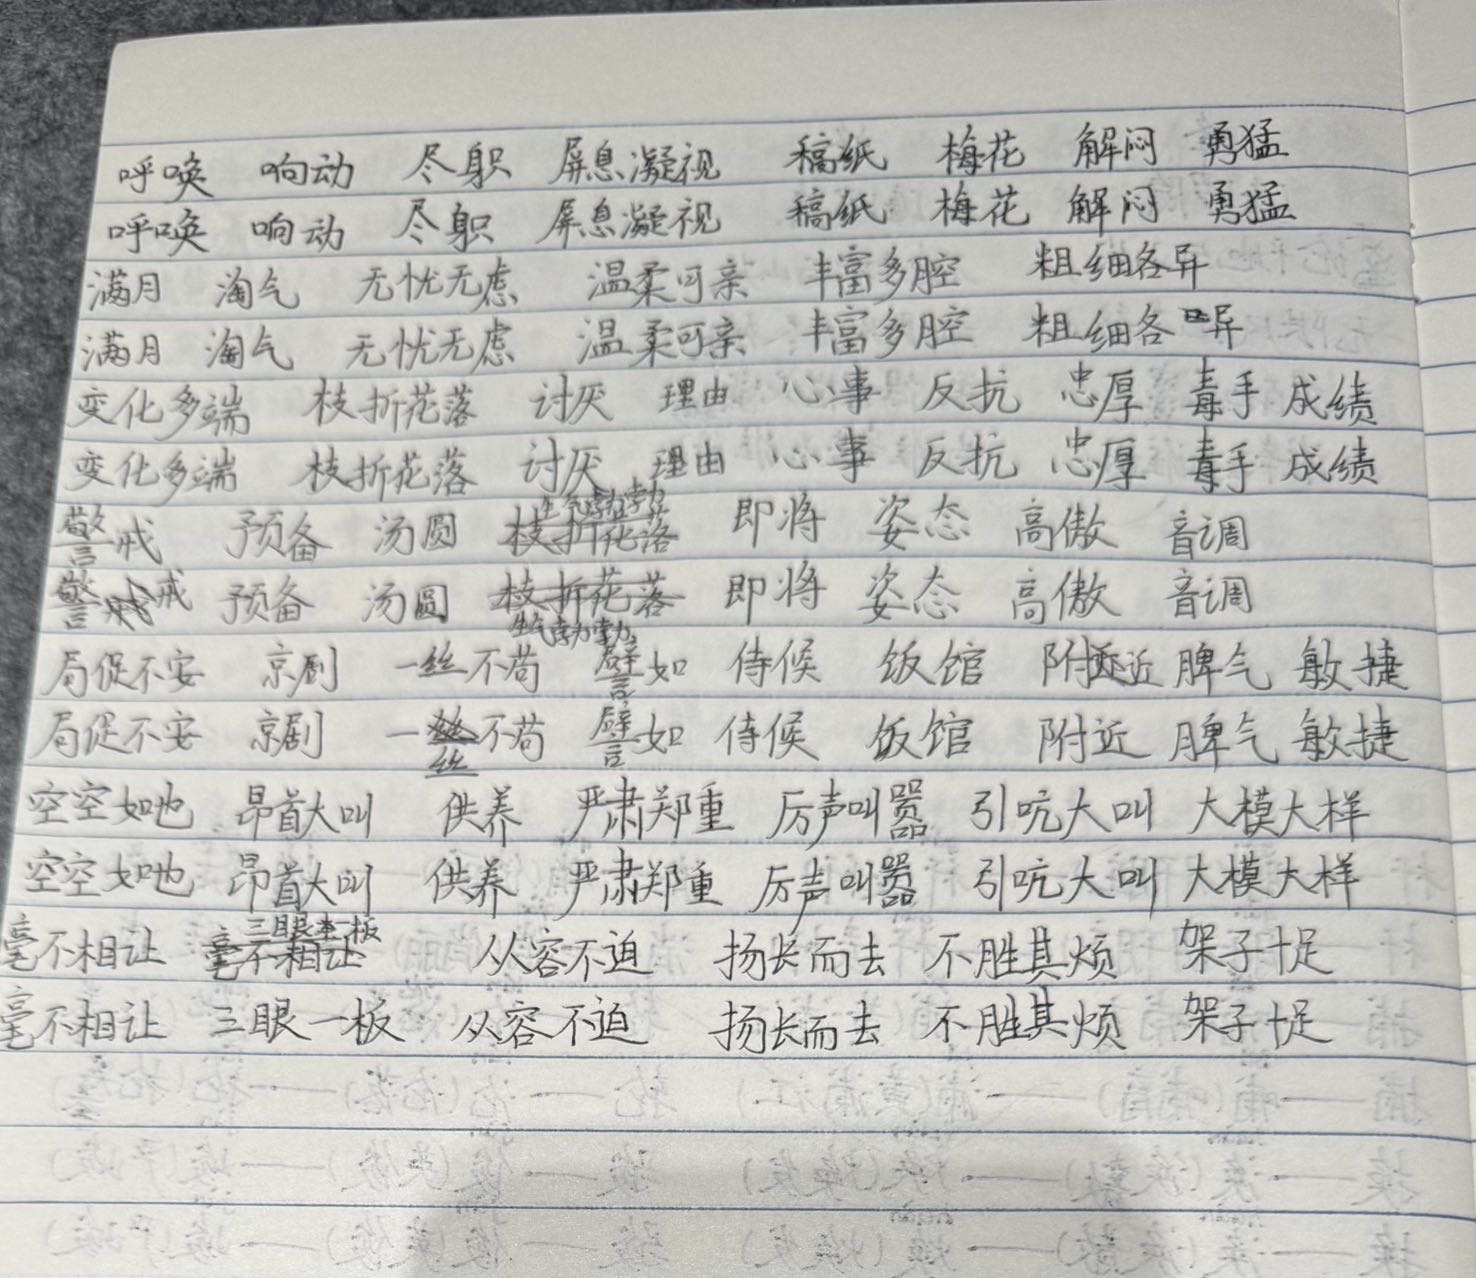 呼唤 响动 尽职 屏息凝视 稿纸 梅花 解闷 勇猛
呼唤 响动 尽职 屏息凝视 稿纸 梅花 解闷 勇猛
满月 淘气 无忧无虑 温柔可亲 丰富多腔 粗细各异
满月 淘气 无忧无虑 温柔可亲 丰富多腔 粗细各异
变化多端 枝折花落 讨厌 理由 心事 反抗 忠厚 毒手 成绩
变化多端 枝折花落 讨厌 理由 心事 反抗 忠厚 毒手 成绩
生气勃勃
警戒 预备 汤圆 枝折花落 即将 姿态 高傲 音调
警戒 预备 汤圆 枝折花落 即将 姿态 高傲 音调
生气勃勃
局促不安 京剧 一丝不苟 譬如 侍候 饭馆 附近 脾气 敏捷
局促不安 京剧 一丝不苟 譬如 侍候 饭馆 附近 脾气 敏捷
空空如也 昂首大叫 供养 严肃郑重 厉声叫嚣 引吭大叫 大模大样
空空如也 昂首大叫 供养 严肃郑重 厉声叫嚣 引吭大叫 大模大样
三眼一板
毫不相让 毫不相让 从容不迫 扬长而去 不胜其烦 架子十足
毫不相让 三眼一板 从容不迫 扬长而去 不胜其烦 架子十足